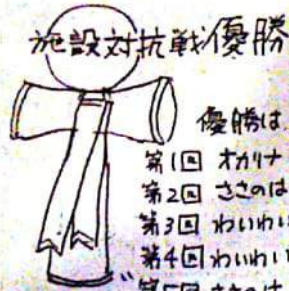 施設対抗戦優勝
優勝は
第1回 オカリナ
第2回 ささのは
第3回 わいわい
第4回 わいわい
第5回 ささのは